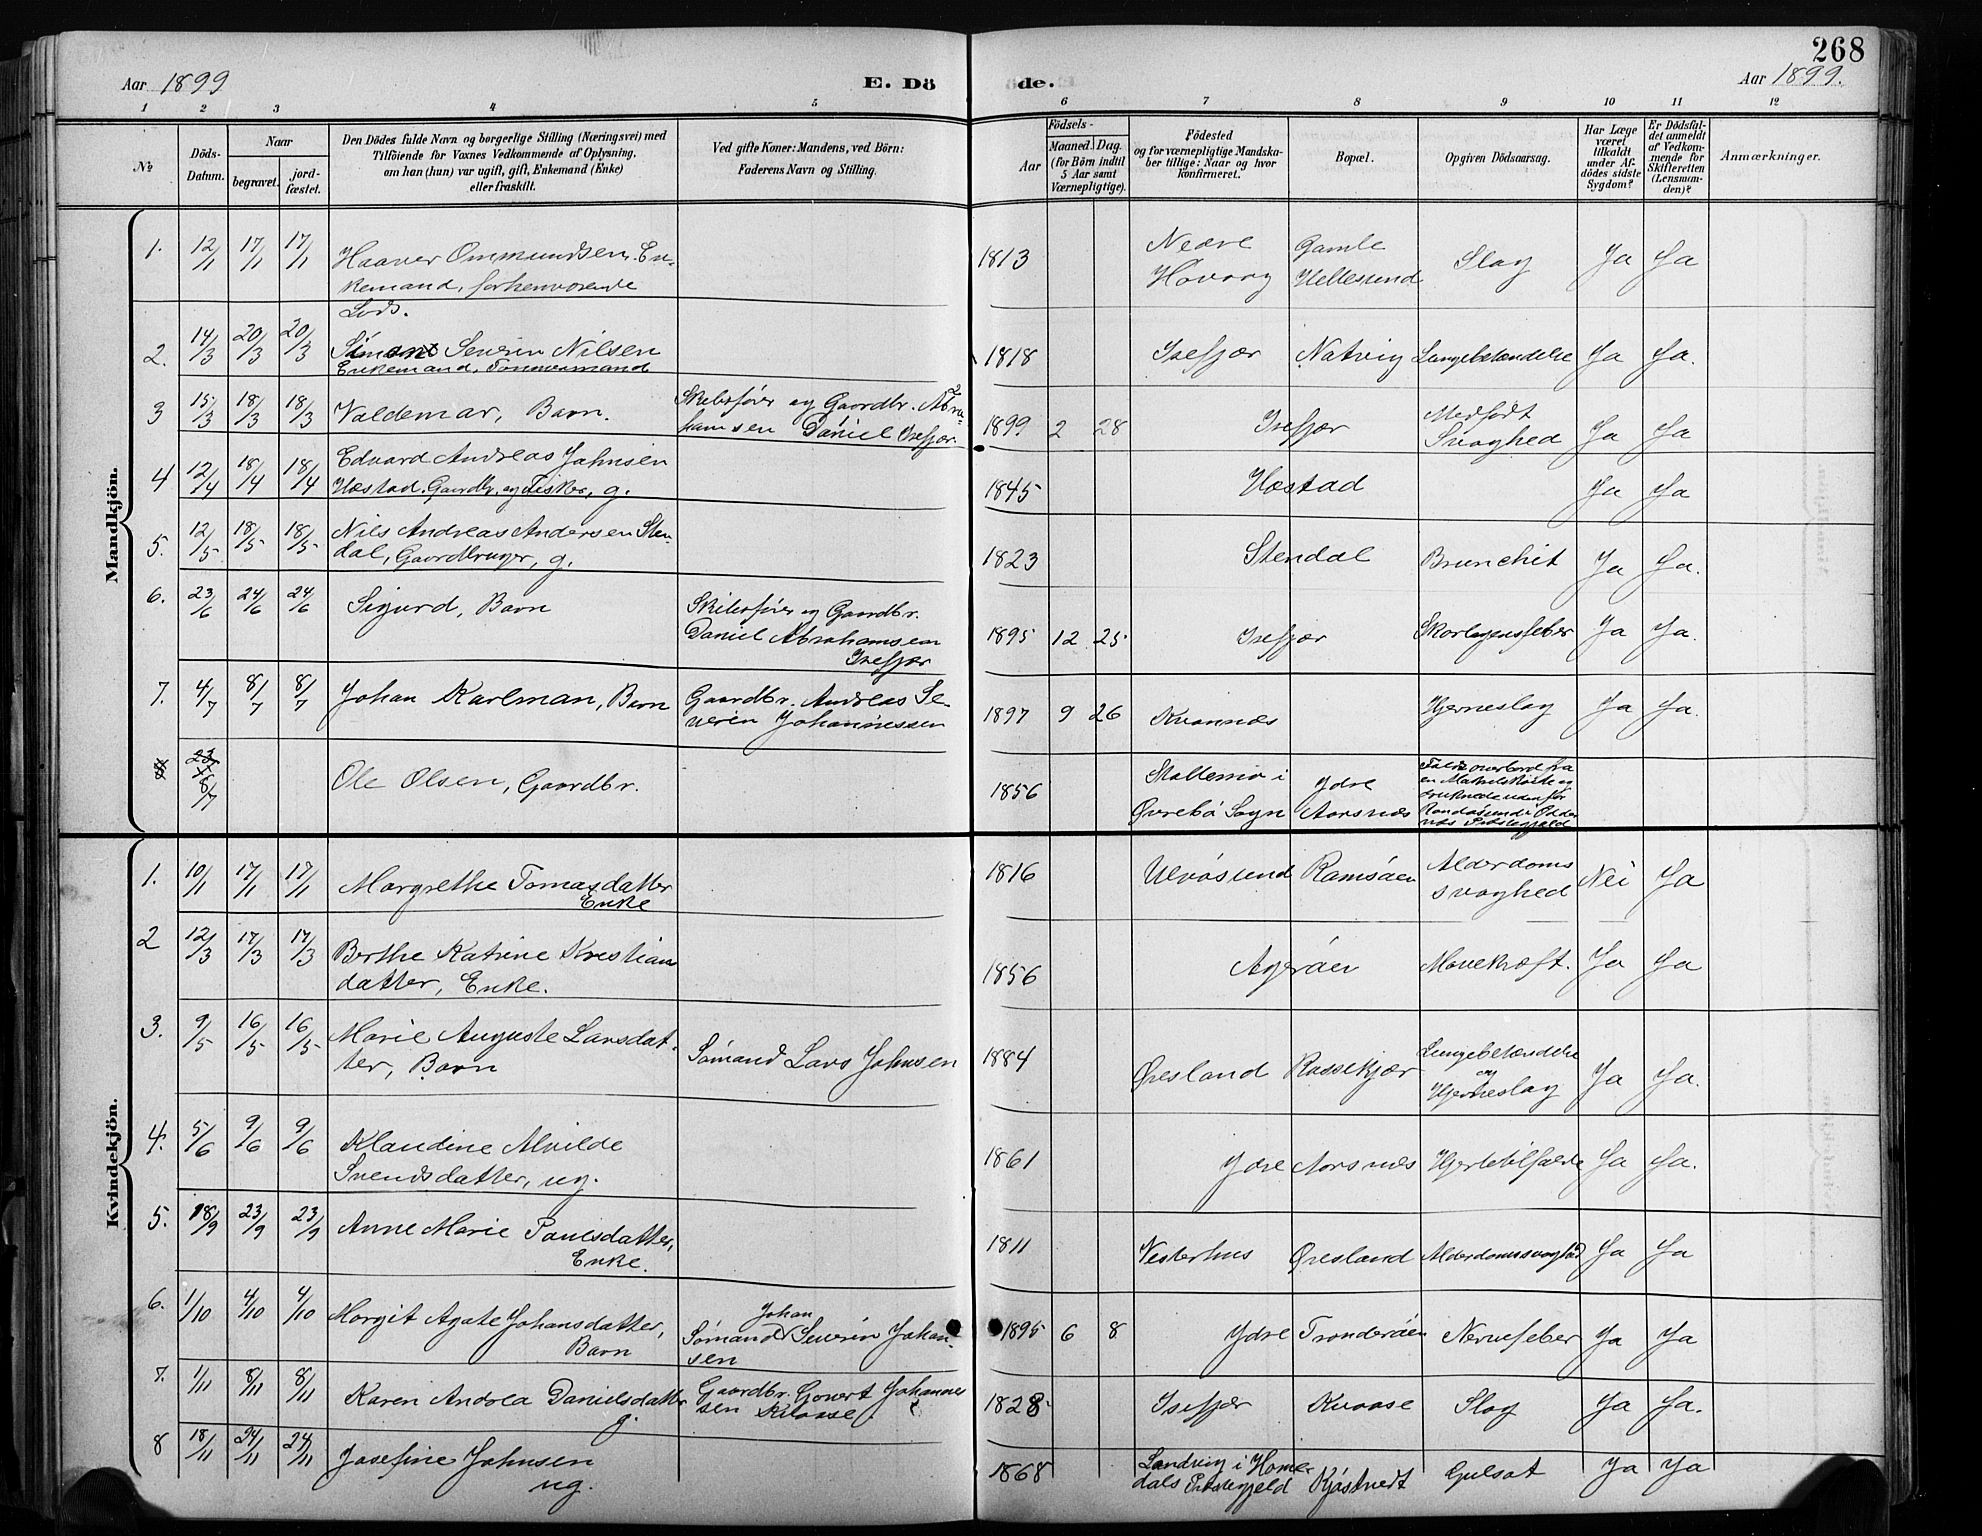 268
Aar 1899
E. Dö de.
Aar 1899.
1 2 3 4 5 6 7 8 9 10 11 12
No.
Döds-Datum.
Naar
begravet.
jordfæstet.
Den Dödes fulde Navn og borgerlige Stilling (Næringsvei) med
Tilföiende for Voxnes Vedkommende af Oplysning,
om han (hun) var ugift, gift, Enkemand (Enke)
eller fraskilt.
Ved gifte Koner: Mandens, ved Börn:
Faderens Navn og Stilling.
Födsels-
Aar
Maaned. Dag.
(for Börn indtil
5 Aar samt
Værnepligtige).
Födested
og for værnepligtige Mandska-
ber tillige: Naar og hvor
Konfirmeret.
Bopæl.
Opgiven Dödsaarsag.
Har Læge
været
tilkaldt
under Af-
dödes sidste
Sygdom?
Er Dödsfal-
det anmeldt
af Vedkom-
mende for
Skifteretten
(Lensman-
den)?
Anmærkninger.
Mandkjön.
1. 12/1 17/1 17/1 Haaver Ommundsen. En-
kemand, forhenværende
Lods.
1813 Nedre
Hövaag Gamle
Hellesund Slag Ja Ja
2. 14/3 20/3 20/3 Simon Severin Nilsen
Enkemand, Tömmermand
1818 Isefjær Natvig Lungebetændelse Ja Ja.
3 15/3 18/3 18/3 Valdemar, Barn.
Skibsförer og Gaardbr. Abra-
hamsen Daniel Isefjær.
1899 2 28 Isefjær Medfödt
Svaghed Ja Ja
4 12/4 18/4 18/4 Edvard Andreas Johnsen
Hæstad. Gaardbr. og Fisker, g.
1845 Hæstad Ja Ja
5. 12/5 18/5 18/5 Nils Andreas Andersen Sten-
dal, Gaardbruger, g.
1823 Stendal Brunchit Ja Ja.
6. 23/6 24/6 24/6 Sigurd, Barn
Skibsförer og Gaardbr.
Daniel Abrahamsen
Isefjær
1895 12 25 Isefjær Skarlagensfeber Ja Ja.
7. 4/7 8/7 8/7 Johan Karlman, Barn
Gaardbr. Andreas Se-
verin Johannessen
1897 9 26 Kvannæs Hjerneslag Ja Ja.
8 8/7 Ole Olsen, Gaardbr.
1856 Stallemo i
Övrebö Sogn Ydre
Aarsnæs Faldt overbord fra
en Makrelskøite og
druknede uden for
Randösund i Odder-
næs Præstegjeld
Kvindekjön.
1. 10/1 17/1 17/1 Margrethe Tomasdatter
Enke
1816 Ulvösund Ramsöen Alderdoms
svaghed Nei Ja
2 12/3 17/3 17/3 Berthe Katrine Kristians
datter, Enke.
1856 Ageröen Mavekræft. Ja Ja
3. 9/5 16/5 16/5 Marie Auguste Larsdat-
ter, Barn
Sömand Lars Johnsen
1884 Öresland Kassekjær Lungebetændelse
og
Hjerneslag Ja Ja.
4. 5/6 9/6 9/6 Klaudine Alvilde
Svendsdatter, ug.
1861 Ydre Aarsnæs Hjertetilfælde Ja Ja.
5. 18/9 23/9 23/9 Anne Marie Paulsdatter,
Enke.
1811 Vesterhus Öresland Alderdomssvaghed Ja Ja
6. 1/10 4/10 4/10 Margit Agate Johansdatter,
Barn
Johan
Sömand Severin Johan-
sen
1895 6 8 Ydre Tronderöen Nervefeber Ja Ja
7. 1/11 8/11 8/11 Karen Andrea Danielsdatter
g.
Gaardbr. Govert Johannes
sen Kvaase
1828 Isefjær Kvaase Slag Ja Ja.
8 18/11 24/11 24/11 Josefine Johnsen
ug.
1868 Landvig i Homme-
dals Præstegjeld Kjöstvedt Gulsot Ja Ja